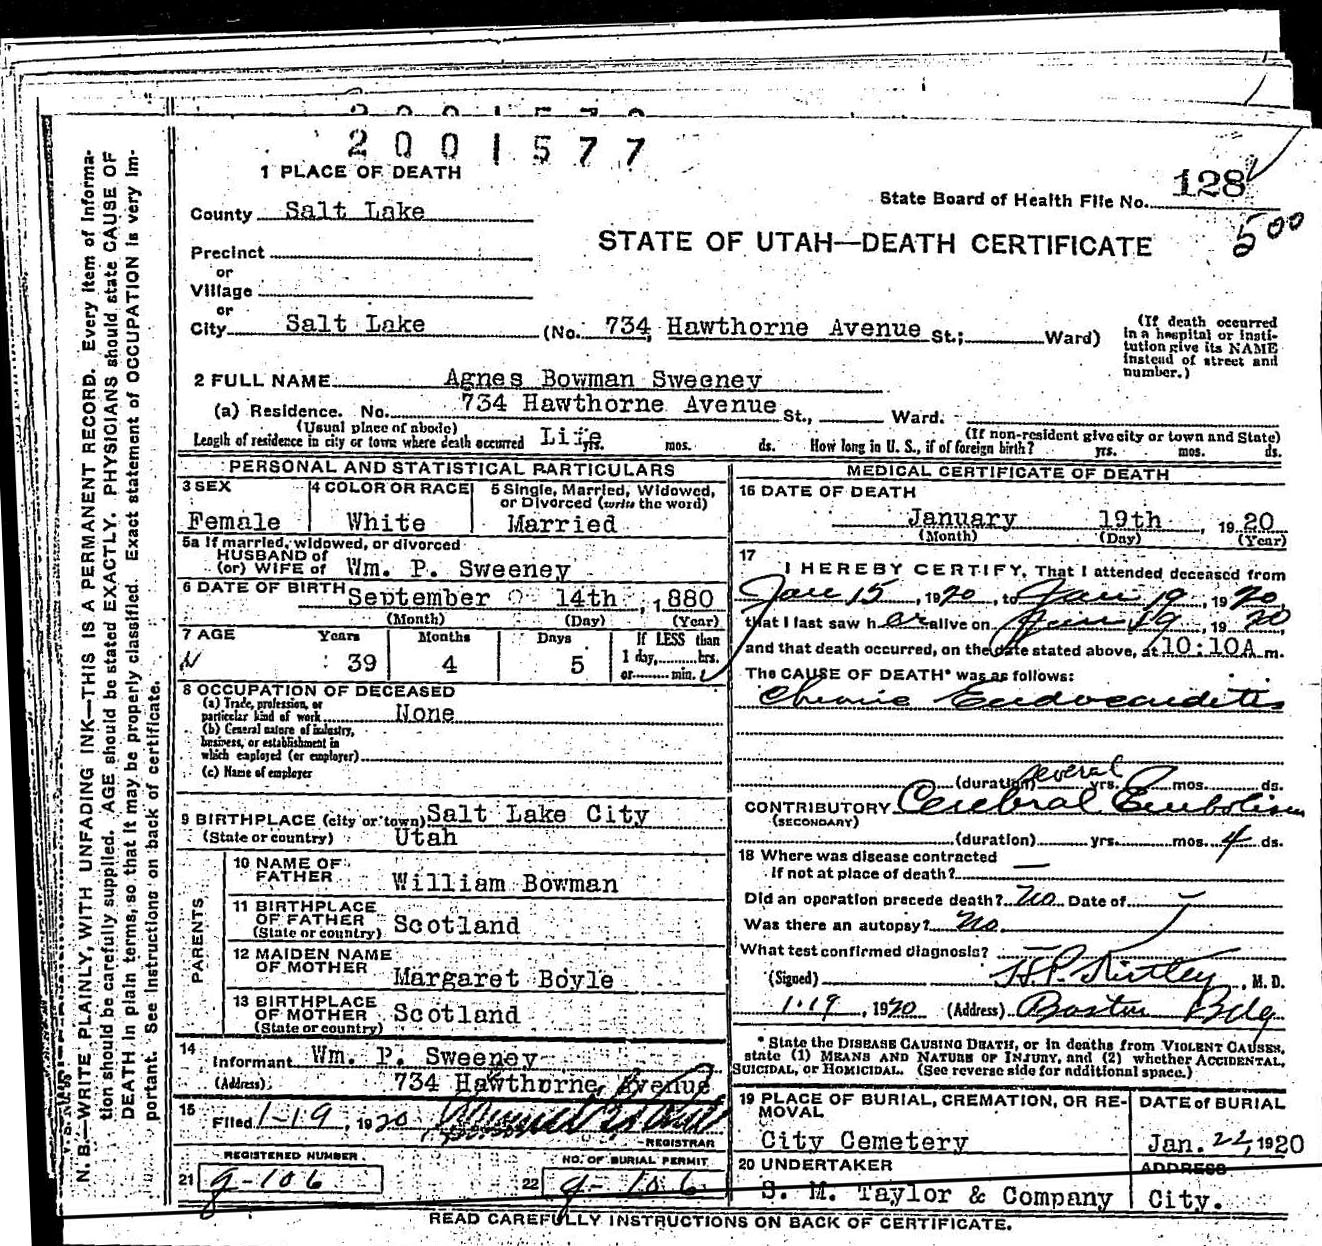 2001577
1 PLACE OF DEATH
State Board of Health File No. 128
5 00
County Salt Lake
STATE OF UTAH—DEATH CERTIFICATE
Precinct
or
Village
or
City Salt Lake (No. 734, Hawthorne Avenue St.; Ward)
(If death occurred in a hospital or insti-
tution give its NAME
instead of street and
number.)
2 FULL NAME Agnes Bowman Sweeney
(a) Residence. No. 734 Hawthorne Avenue St., Ward.
(Usual place of abode) (If non-resident give city or town and State)
Length of residence in city or town where death occurred Life yrs. mos. ds. How long in U. S., if of foreign birth? yrs. mos. ds.
PERSONAL AND STATISTICAL PARTICULARS
3 SEX 4 COLOR OR RACE 5 Single, Married, Widowed,
or Divorced (write the word)
Female White Married
5a If married, widowed, or divorced
HUSBAND of
(or) WIFE of Wm. P. Sweeney
6 DATE OF BIRTH September 14th, 1880
(Month) (Day) (Year)
7 AGE Years Months Days If LESS than
39 4 5 1 day, hrs.
or min.
8 OCCUPATION OF DECEASED
(a) Trade, profession, or
particular kind of work None
(b) General nature of industry,
business, or establishment in
which employed (or employer)
(c) Name of employer
9 BIRTHPLACE (city or town) Salt Lake City
(State or country) Utah
PARENTS
10 NAME OF
FATHER William Bowman
11 BIRTHPLACE
OF FATHER Scotland
(State or country)
12 MAIDEN NAME
OF MOTHER Margaret Boyle
13 BIRTHPLACE
OF MOTHER Scotland
(State or country)
14 Informant Wm. P. Sweeney
(Address) 734 Hawthorne Avenue
15 Filed 1-19, 1920
REGISTRAR
REGISTERED NUMBER. NO. OF BURIAL PERMIT
21 g-106 22 g-106
MEDICAL CERTIFICATE OF DEATH
16 DATE OF DEATH
January 19th, 1920
(Month) (Day) (Year)
17
I HEREBY CERTIFY, That I attended deceased from
Jan 15, 1920, to Jan 19, 1920
that I last saw her alive on Jan 19, 1920,
and that death occurred, on the date stated above, at 10:10A m.
The CAUSE OF DEATH* was as follows:
Chronic Endocarditis
(duration) several yrs. mos. ds.
CONTRIBUTORY Cerebral Embolism
(SECONDARY)
(duration) yrs. mos. 4 ds.
18 Where was disease contracted
If not at place of death? —
Did an operation precede death? No Date of
Was there an autopsy? No.
What test confirmed diagnosis? —
(Signed) H.P. Kirtley, M. D.
1-19, 1920 (Address) Boston Bldg
* State the DISEASE CAUSING DEATH, or in deaths from VIOLENT CAUSES,
state (1) MEANS AND NATURE OF INJURY, and (2) whether ACCIDENTAL,
SUICIDAL, or HOMICIDAL. (See reverse side for additional space.)
19 PLACE OF BURIAL, CREMATION, OR RE-
MOVAL DATE of BURIAL
City Cemetery Jan. 22, 1920
20 UNDERTAKER ADDRESS
S. M. Taylor & Company City.
READ CAREFULLY INSTRUCTIONS ON BACK OF CERTIFICATE.
N. B.—WRITE PLAINLY, WITH UNFADING INK—THIS IS A PERMANENT RECORD. Every item of informa-
tion should be carefully supplied. AGE should be stated EXACTLY. PHYSICIANS should state CAUSE OF
DEATH in plain terms, so that it may be properly classified. Exact statement of OCCUPATION is very im-
portant. See instructions on back of certificate.